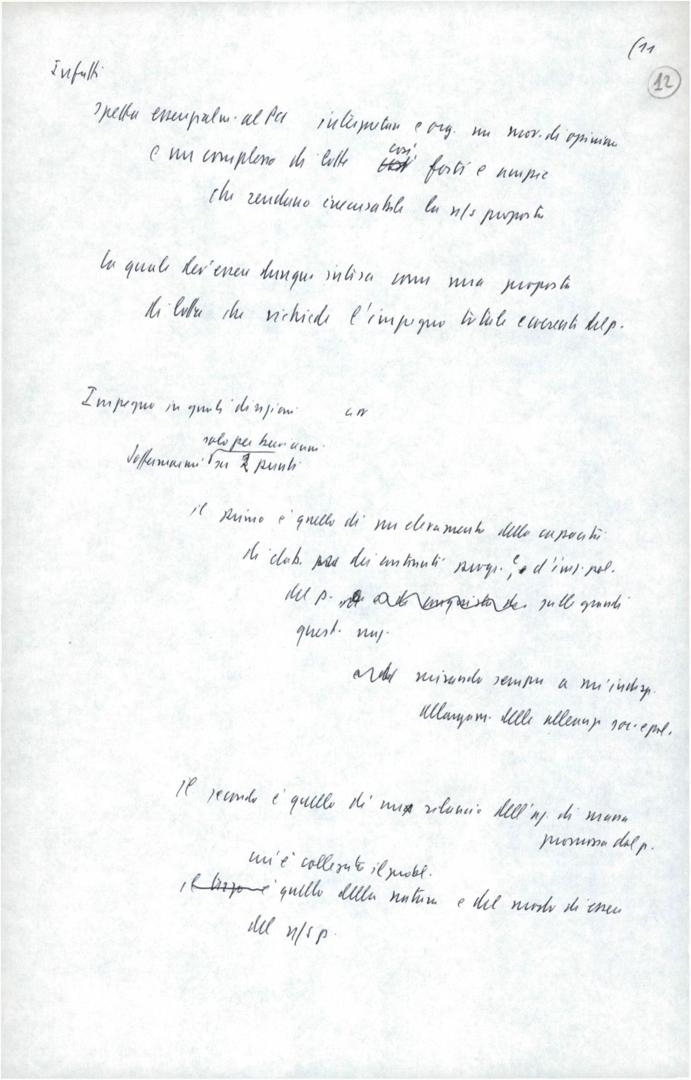 (11
12
Infatti
spetta essenzialm. al Pci interpretare e org. un mov. di opinione
e un complesso di lotte così forti e ampie
che rendano irrecusabile la n/s proposta
la quale dev'essere dunque intesa come una proposta
di lotta che richiede l'impegno totale e coerente del p.
Impegno in quali direzioni
solo per brevi cenni
Soffermarmi su 2 punti
il primo è quello di un elevamento della capacità
di elab. dei contenuti progr. e d'iniz. pol.
del p. sulle grandi
quest. naz.
mirando sempre a un'indisp.
allargam. delle alleanze soc. e pol.
Il secondo è quello di un rilancio dell'az. di massa
promossa dal p.
cui è collegato il probl.
il terzo è quello della natura e del modo di essere
del n/s p.